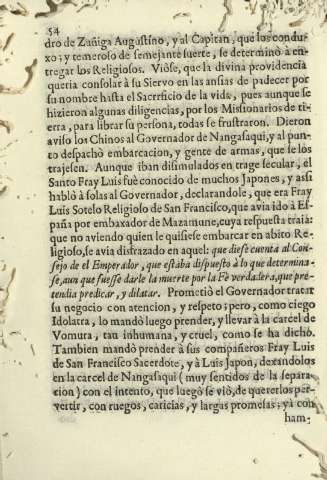 54
dro de Zuñiga Augustino, y al Capitan, que los condu-
xo; y temeroso de semejante suerte, se determinò à en-
tregar los Religiosos. Viòse, que la divina providencia
queria consolar à su Siervo en las ansias de padecer por
su nombre hasta el Sacrificio de la vida, pues aunque se
hizieron algunas diligencias, por los Missionarios de tie-
rra, para librar su persona, todas se frustraron. Dieron
aviso los Chinos al Governador de Nangasaqui, y al pun-
to despachò embarcacion, y gente de armas, que se los
trajesen. Aunque iban disimulados en trage secular, el
Santo Fray Luis fuè conocido de muchos Japones, y assi
hablò à solas al Governador, declarandole, que era Fray
Luis Sotelo Religioso de San Francisco, que avia ido à Es-
paña por embaxador de Mazamune, cuya respuesta traìa:
que no aviendo quien le quisiese embarcar en abito Re-
ligioso, se avia disfrazado en aquel: que diese cuenta al Con-
sejo de el Emperador, que estaba dispuesto à lo que determina-
se, aun que fuesse darle la muerte por la Fè verdadera, que pre-
tendia predicar, y dilatar. Prometiò el Governador tratar
su negocio con atencion, y respeto; pero, como ciego
Idolatra, lo mandò luego prender, y llevar à la carcel de
Vomura, tan inhumana, y cruel, como se ha dicho.
Tambien mandò prender à sus compañeros Fray Luis
de San Francisco Sacerdote, y à Luis Japon, dexandolos
en la carcel de Nangasaqui (muy sentidos de la separa-
cion) con el intento, que luegò se viò, de quererlos per-
vertir, con ruegos, caricias, y largas promesas; ya con
ham-